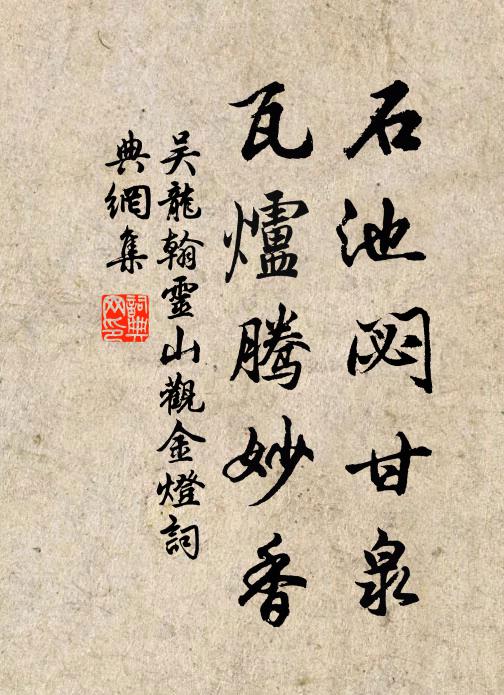 石池閟甘泉
瓦爐騰妙香
吳龍翰靈山觀金燈詞
典網集
詞典
網印